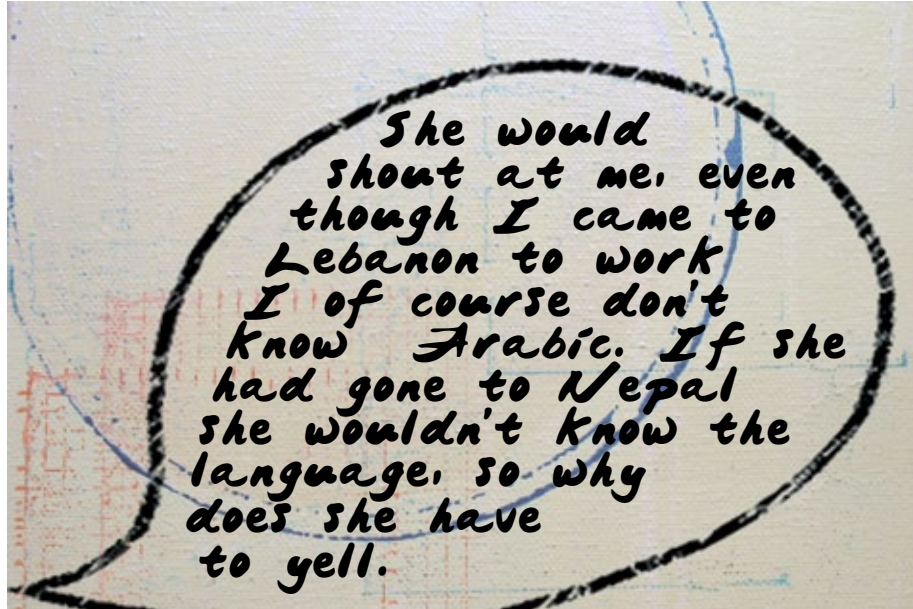 She would
shout at me, even
though I came to
Lebanon to work
I of course don't
know Arabic. If she
had gone to Nepal
she wouldn't know the
language, so why
does she have
to yell.